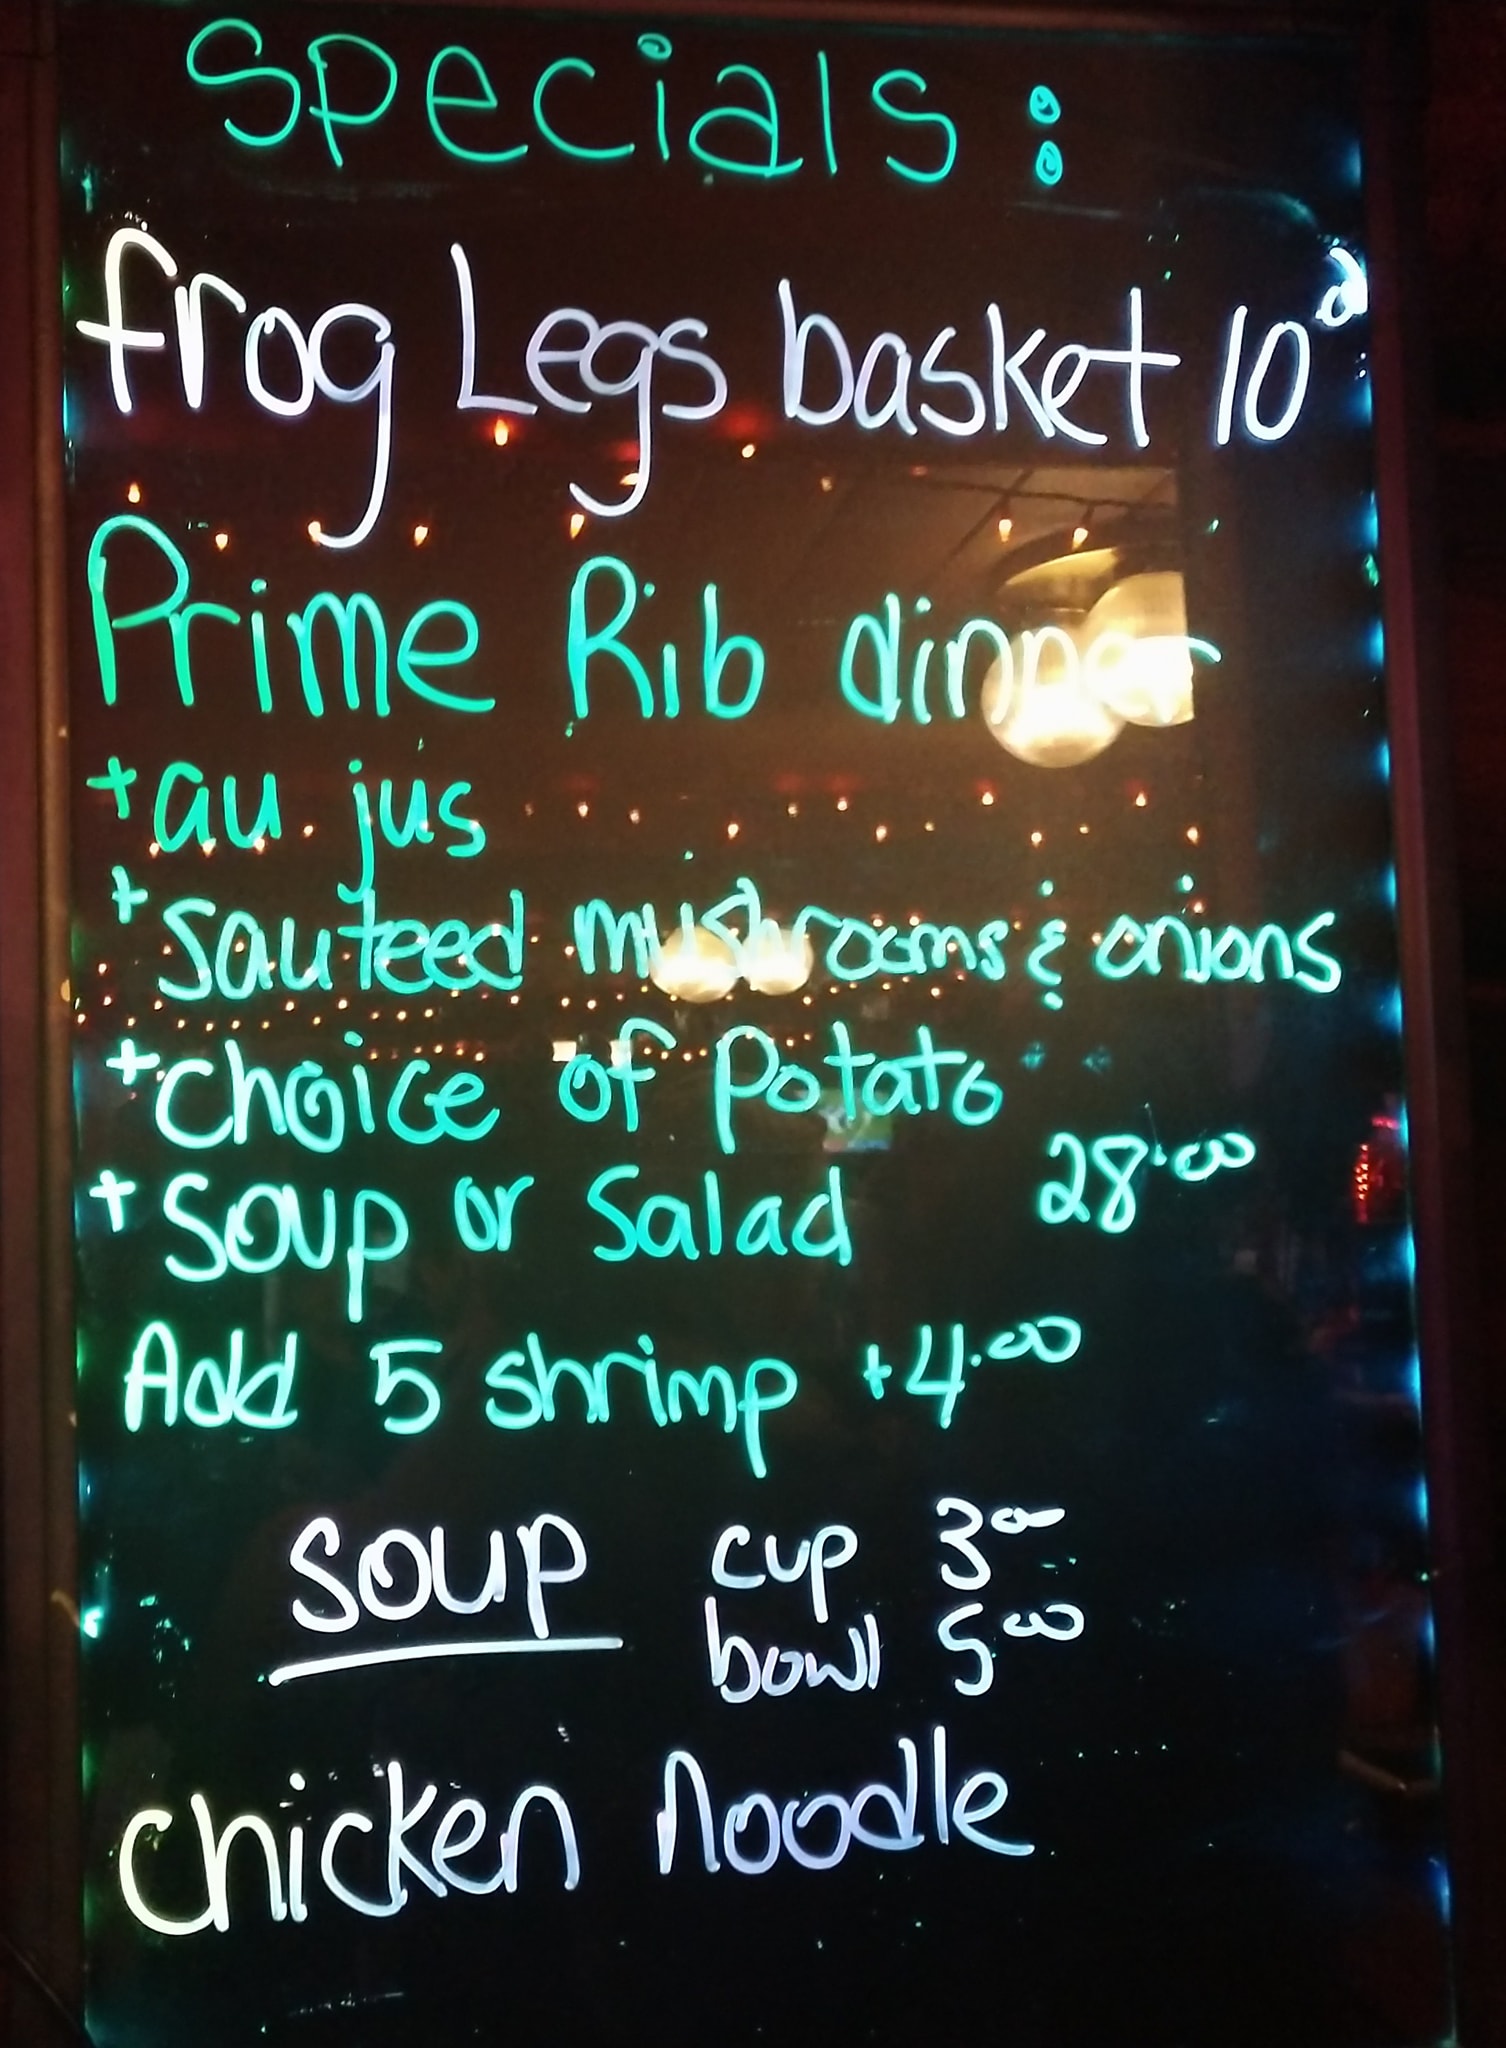 Specials:
frog Legs basket 10
Prime Rib dinner
+ au jus
+ Sauteed mushrooms & onions
+ Choice of Potato
+ Soup or Salad 28.00
Add 5 shrimp +4.00
Soup cup 3.00
bowl 5.00
Chicken Noodle